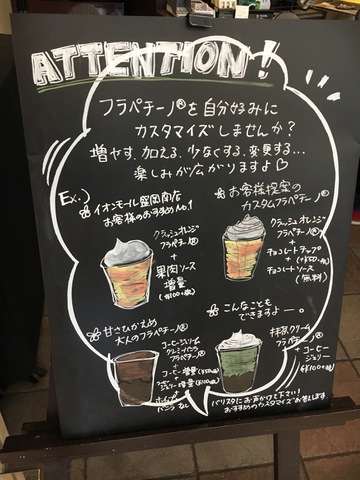 ATTENTION!
フラペチーノ®を自分好みに
カスタマイズしませんか?
増やす、加える、少なくする、変更する...
楽しみが広がりますよ♡
Ex.)
イオンモール盛岡南店
お客様のおすすめNo.1
クラッシュオレンジ
フラペチーノ®
+
果肉ソース
増量
(¥100+税)
お客様提案の
カスタムフラペチーノ®
クラッシュオレンジ
フラペチーノ®
+
チョコレートチップ
+ (+¥50+税)
チョコレートソース
(無料)
甘さひかえめ
大人のフラペチーノ®
コーヒージェリー
フラペチーノ®
+
コーヒー増量(¥50+税)
ジェリー増量(¥100+税)
ホイップ
なし
こんなことも
できますよー。
抹茶クリーム
フラペチーノ®
+コーヒー
ジェリー
(¥100+税)
バリスタにお声かけ下さい!
おすすめのカスタマイズお答えします。